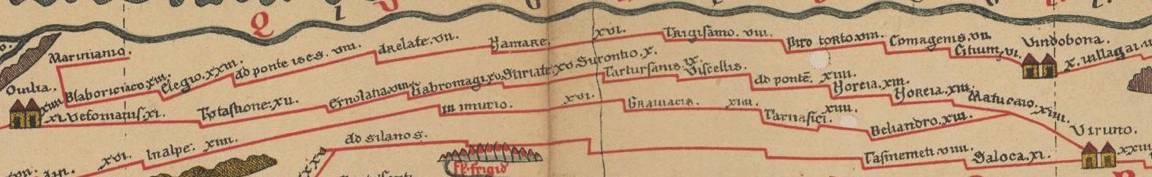 Marinianio.
Ovilia.
Blaboriciaco. xiii.
Elegio. xxiii.
ad ponte ises. viii.
Arelate. vii.
Namare.
xvi.
Trigisamo. viii.
Piro torto. viii.
Comagenis. vii.
Citium. vi.
Vindobona.
x. villagai.
xi. Vetonianis. xi.
Tutastione. xii.
Ernolatia. viii.
Gabromagi. xv.
Stiriate. xv.
Surontio. x.
Tartursanis. ix.
Viscellis.
ad ponte. xiiii.
Noreia. xiii.
Noreia. xiii.
Matucaio. xiiii.
Viruno.
xvi.
Inalpe. xiiii.
In murio.
xvi.
Graviacis.
xiiii.
Tarnasici.
xiiii.
Beliandro. xiii.
ad silanos.
fl. frigido
Tasinemeti. viiii.
Saloca. xi.
xxiii